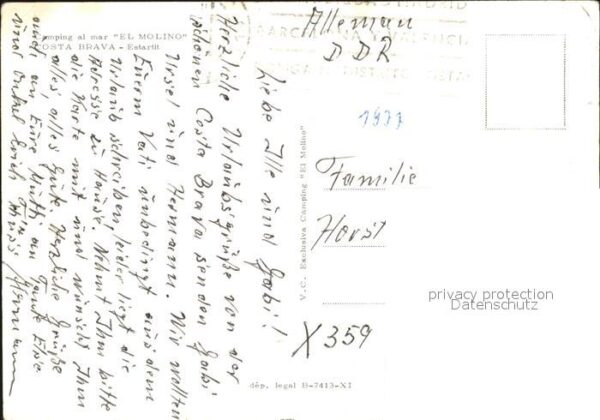 Camping al mar "EL MOLINO"
COSTA BRAVA - Estartit
Liebe Ille und Gabi!
Herzliche Urlaubsgrüße von der
schönen Costa Brava senden Gabi
Ursel und Hermann. Wir wollten
Euerm Vati unbedingt aus dem
Urlaub schreiben leider liegt die
Adresse zu Hause. Nehmt Ihm bitte
die Karte mit und wünscht Ihm
alles, alles Gute. Herzliche Grüße
auch an Eure Mutti an Tante Else
und Onkel Erich
Hermann
V.C. Exclusiva Camping "El Molino"
dép. legal B-7413-XI
Alleman
DDR
1977
Familie
Horst
X 359
privacy protection
Datenschutz